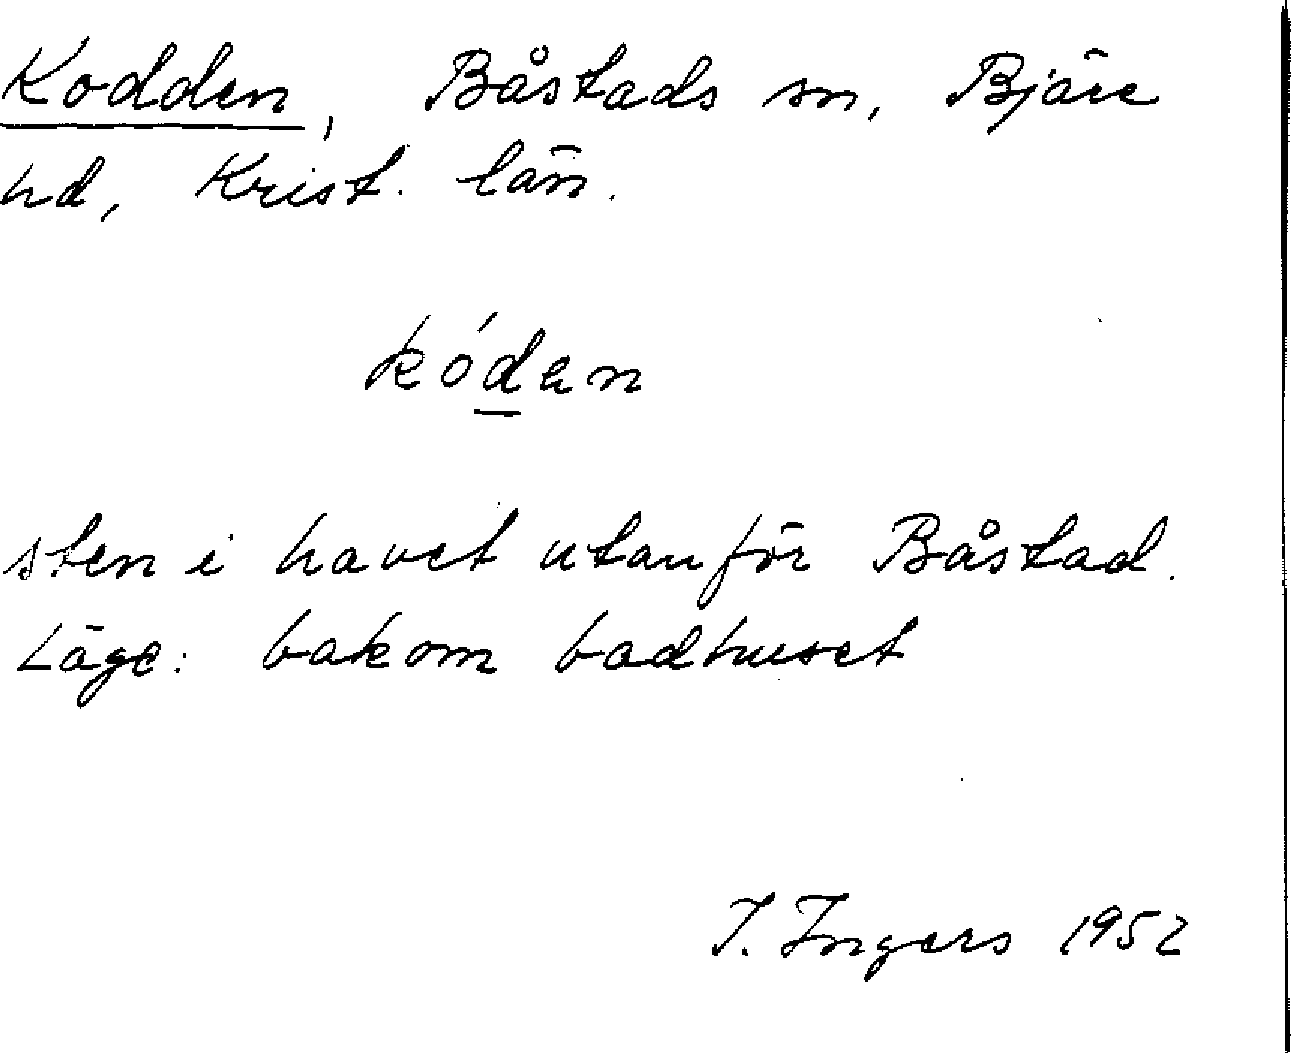 Kodden, Båstads sn, Bjäre
hd, Krist. län.
kóden
sten i havet utanför Båstad.
Läge: bakom badhuset
I. Ingers 1952